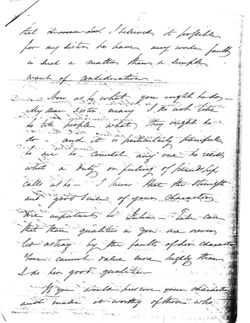 that Heaven but I believed it possible
for my sister to have any worse fault
in such a matter than a simple
want of consideration.
Now as to what you might to do,
My dear Sister Mary I do not like
to tell people what they ought to
do and it is particularly painful
to me to counsel any one to
what a duty or feeling of friendship
calls to I know that the strength
and good sense of your character
are important to take care
that these qualities in you are never
led astray by the faults of her character
You cannot value more highly than
I do her good qualities
If you would preserve your character
and make it worthy of those who